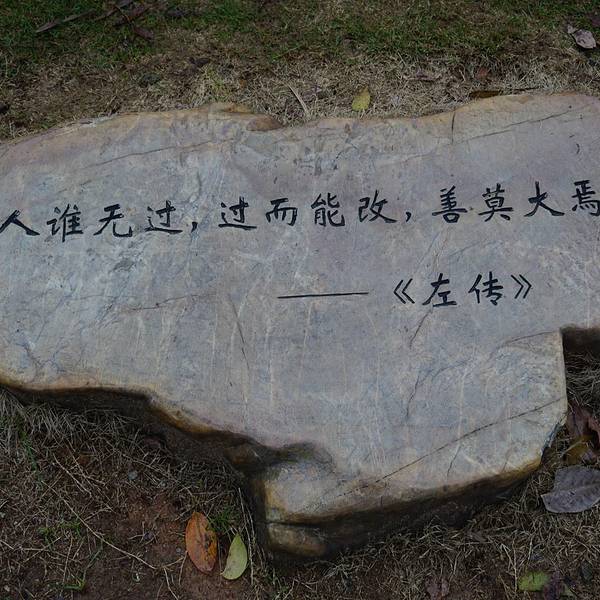 人谁无过,过而能改,善莫大焉
——《左传》